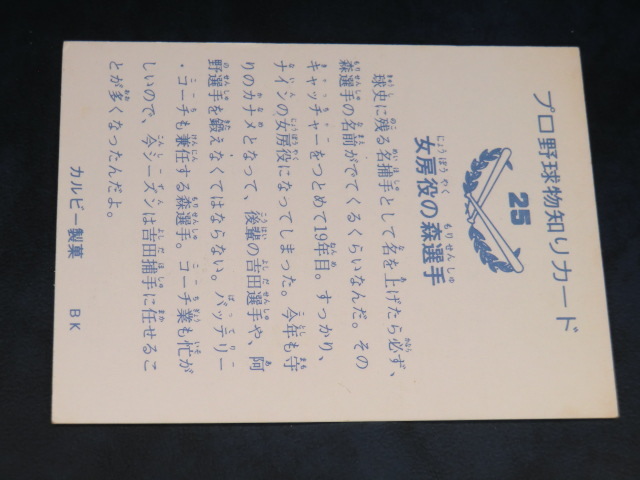 プロ野球物知りカード
25
女房役の森選手
球史に残る名捕手として名を上げたら必ず、
森選手の名前がでてくるくらいなんだ。その
キャッチャーをつとめて19年目。すっかり、
ナインの女房役になってしまった。今年も守
りのカナメとなって、後輩の吉田選手や、阿
野選手を鍛えなくてはならない。バッテリー
・コーチも兼任する森選手。コーチ業も忙が
しいので、今シーズンは吉田捕手に任せるこ
とが多くなったんだよ。
カルビー製菓 BK